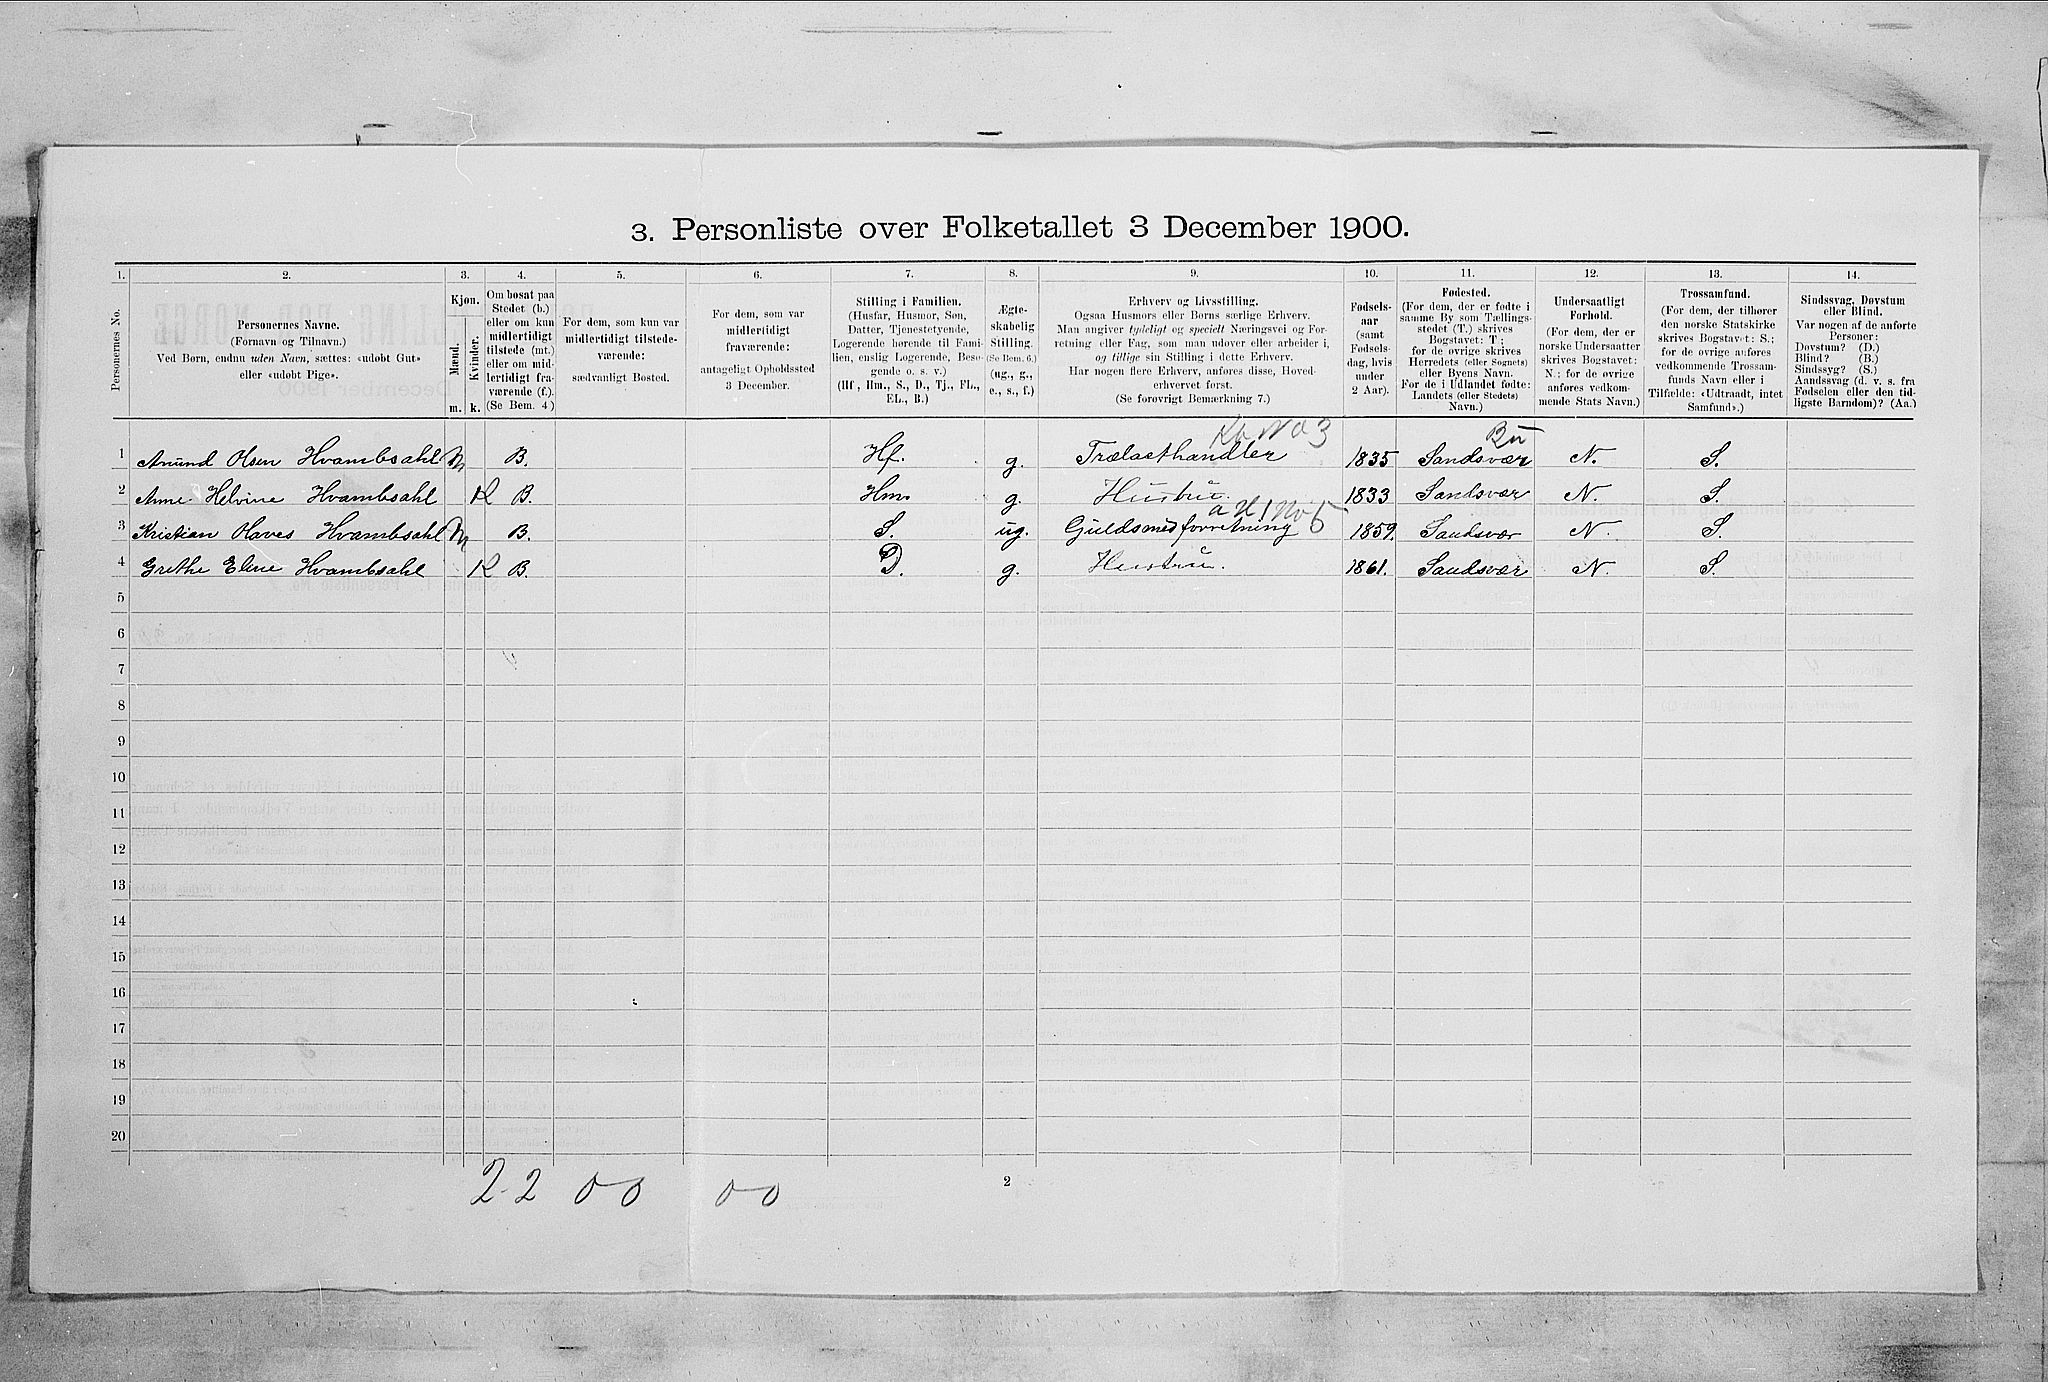 3. Personliste over Folketallet 3 December 1900.
1. 2. 3. 4. 5. 6. 7. 8. 9. 10. 11. 12. 13. 14.
Personernes No.
Personernes Navne.
(Fornavn og Tilnavn.)
Ved Børn, endnu uden Navn, sættes: «udøbt Gut»
eller «udøbt Pige».
Kjøn.
Mænd.
Kvinder.
m. k.
Om bosat paa
Stedet (b.)
eller om kun
midlertidigt
tilstede (mt.)
eller om mid-
lertidigt fra-
værende (f.).
(Se Bem. 4)
For dem, som kun var
midlertidigt tilstede-
værende:
sædvanligt Bosted.
For dem, som var
midlertidigt
fraværende:
antageligt Opholdssted
3 December.
Stilling i Familien.
(Husfar, Husmor, Søn,
Datter, Tjenestetyende,
Logerende hørende til Fami-
lien, enslig Logerende, Besø-
gende o. s. v.)
(Hf, Hm., S., D., Tj., FL.,
EL., B.)
Ægte-
skabelig
Stilling.
(Se Bem. 6.)
(ug., g.,
e., s., f.)
Erhverv og Livsstilling.
Ogsaa Husmors eller Børns særlige Erhverv.
Man angiver tydeligt og specielt Næringsvei og For-
retning eller Fag, som man udøver eller arbeider i,
og tillige sin Stilling i dette Erhverv.
Har nogen flere Erhverv, anføres disse, Hoved-
erhvervet først.
(Se forøvrigt Bemærkning 7.)
Fødsels-
aar
(samt
Fødsels-
dag, hvis
under
2 Aar).
Fødested.
(For dem, der er fødte i
samme By som Tællings-
stedet (T.) skrives
Bogstavet: T;
for de øvrige skrives
Herredets (eller Sognets)
eller Byens Navn.
For de i Udlandet fødte:
Landets (eller Stedets)
Navn.)
Undersaatligt
Forhold.
(For dem, der er
norske Undersaatter
skrives Bogstavet:
N.; for de øvrige
anføres vedkom-
mende Stats Navn.)
Trossamfund.
(For dem, der tilhører
den norske Statskirke
skrives Bogstavet: S.;
for de øvrige anføres
vedkommende Trossam-
funds Navn eller i
Tilfælde: «Udtraadt, intet
Samfund».)
Sindssvag, Døvstum
eller Blind.
Var nogen af de anførte
Personer:
Døvstum? (D.)
Blind? (B.)
Sindssyg? (S.)
Aandssvag (d. v. s. fra
Fødselen eller den tid-
ligste Barndom)? (Aa.)
Bu
1 Amund Olsen Hvambsahl M B. Hf. g. Trælasthandler 1835 Sandsvær N. S.
2 Anne Helvine Hvambsahl K B. Hm. g. Hustru. 1833 Sandsvær N. S.
3 Kristian Olaves Hvambsahl M B. S. ug. Guldsmedforretning 1859. Sandsvær N. S.
4 Grethe Eline Hvambsahl K B. D. g. Hustru. 1861. Sandsvær N. S.
5
6
7
8
9
10
11
12
13
14
15
16
17
18
19
20
2-2 0 0 0 0
2